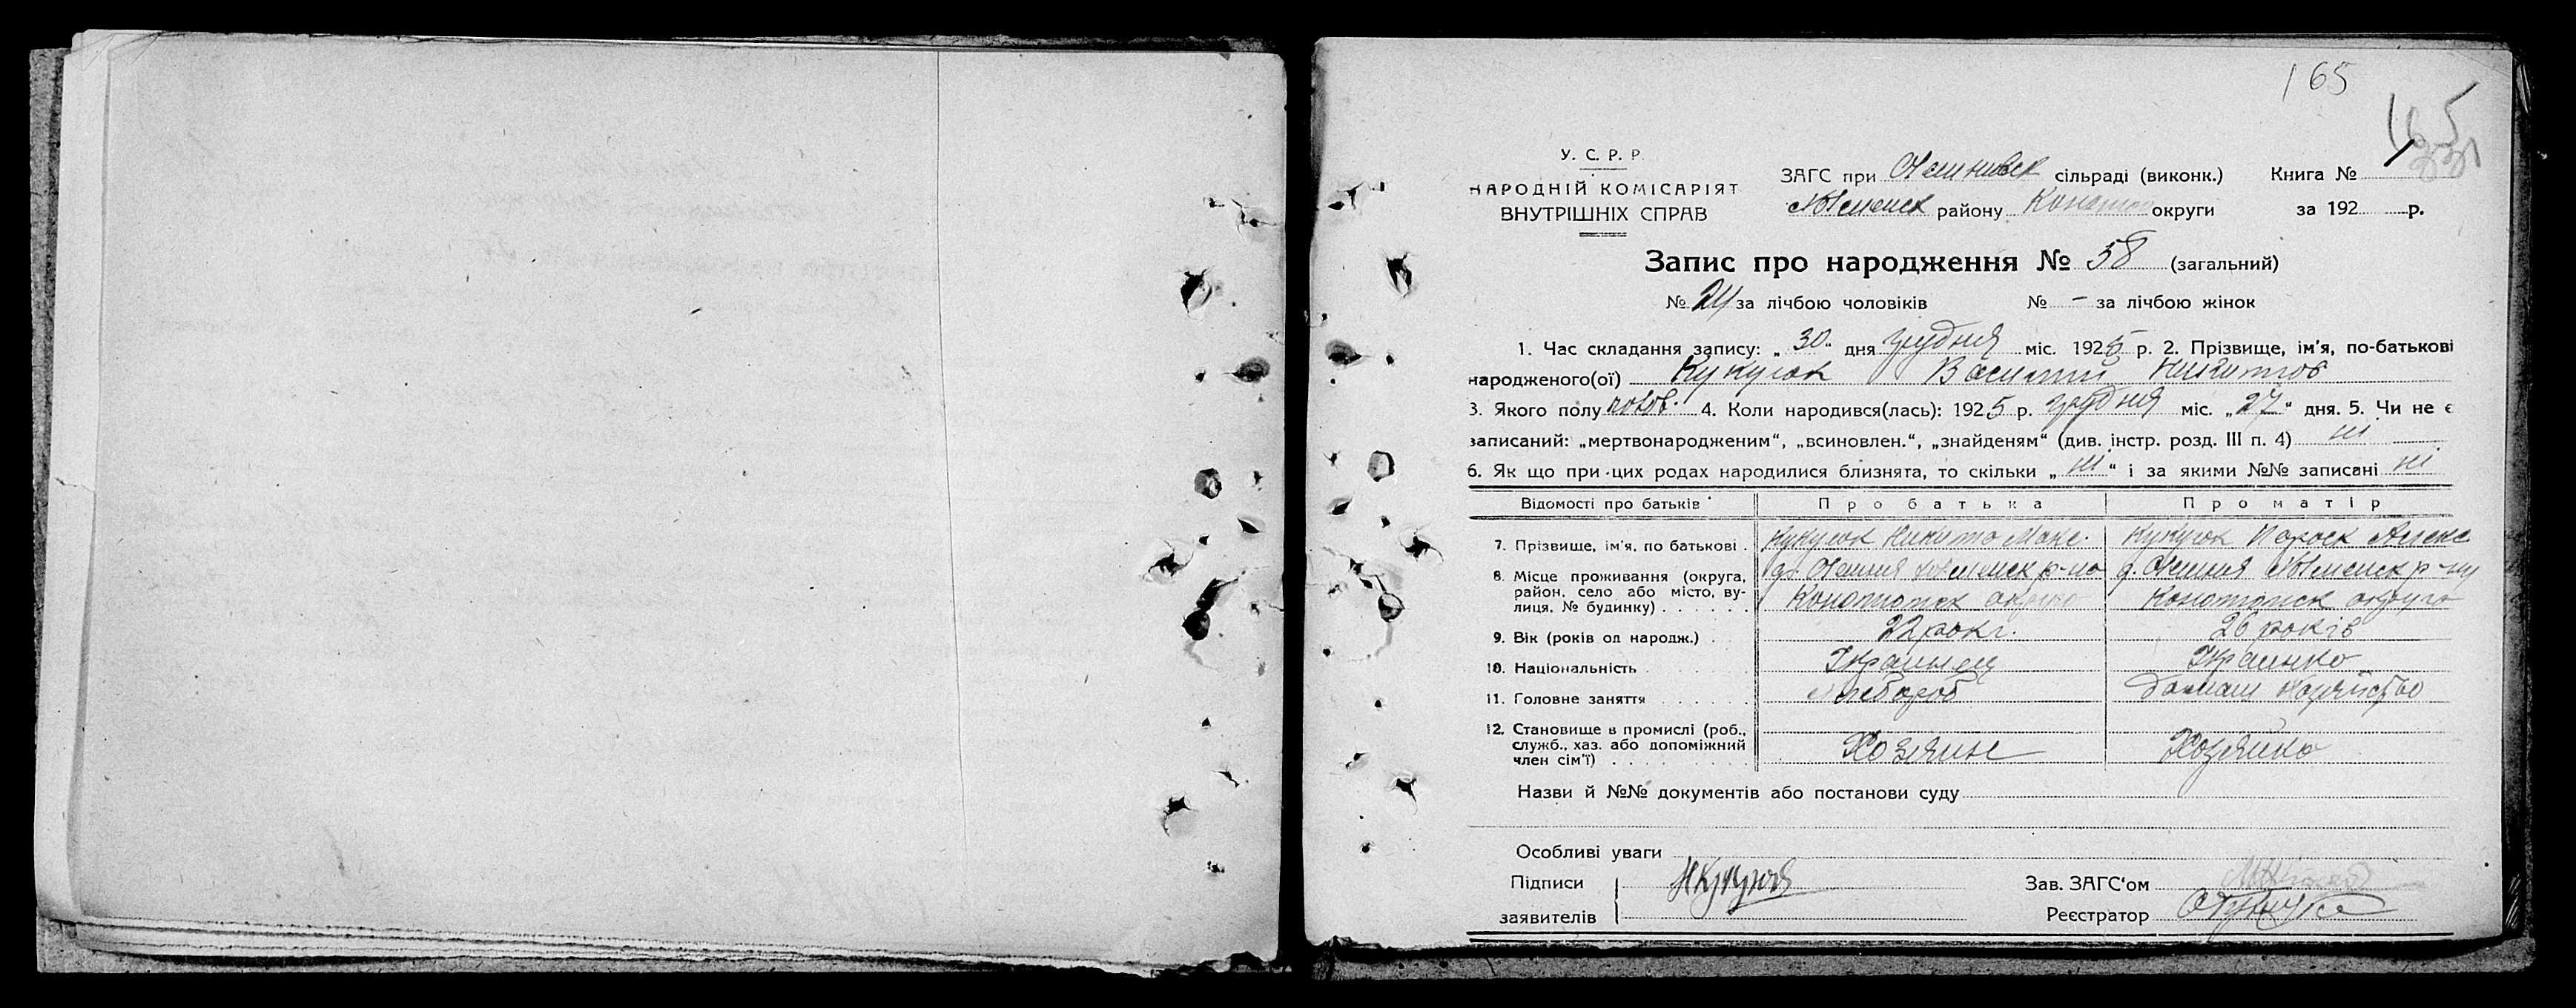 165
165
У. С. Р. Р.
НАРОДНІЙ КОМІСАРІЯТ
ВНУТРІШНІХ СПРАВ
ЗАГС при сільраді (виконк.) Книга № 1
району Конотоп округи за 192 р.
Запис про народження № 58 (загальний)
№ 24 за лічбою чоловіків № - за лічбою жінок
1. Час складання запису: „ 30 “ дня грудня міс. 1925 р. 2. Прізвище, ім'я, по-батькові
народженого(ої) Василий Никитов
3. Якого полу чолов. 4. Коли народився(лась): 1925 р. грудня міс. „ 27 “ дня. 5. Чи не є
записаний: „мертвонародженим“, „всиновлен.“, „знайденям“ (див. інстр. розд. III п. 4) ні
6. Як що при цих родах народилися близнята, то скільки „ ні “ і за якими №№ записані ні
Відомості про батьків Про батька Про матір
7. Прізвище, ім'я, по батькові . Никита Макс. Параск Алекс
8. Місце проживання (округа, р-на р-ну
район, село або місто, ву-
лиця, № будинку) . . . . . . Конотопск округа Конотопск округа
9. Вік (років од народж.) . 22 рокі. 26 років
10. Національність Украинец Украинка
11. Головне заняття . . . . . . Хлебороб Домаш хозяйство
12. Становище в промислі (роб.,
служб., хаз. або допоміжний
член сім'ї) . . . . . . . . . Хозяин Хозяйка
Назви й №№ документів або постанови суду
Особливі уваги
Підписи
заявителів
Зав. ЗАГС'ом
Реєстратор